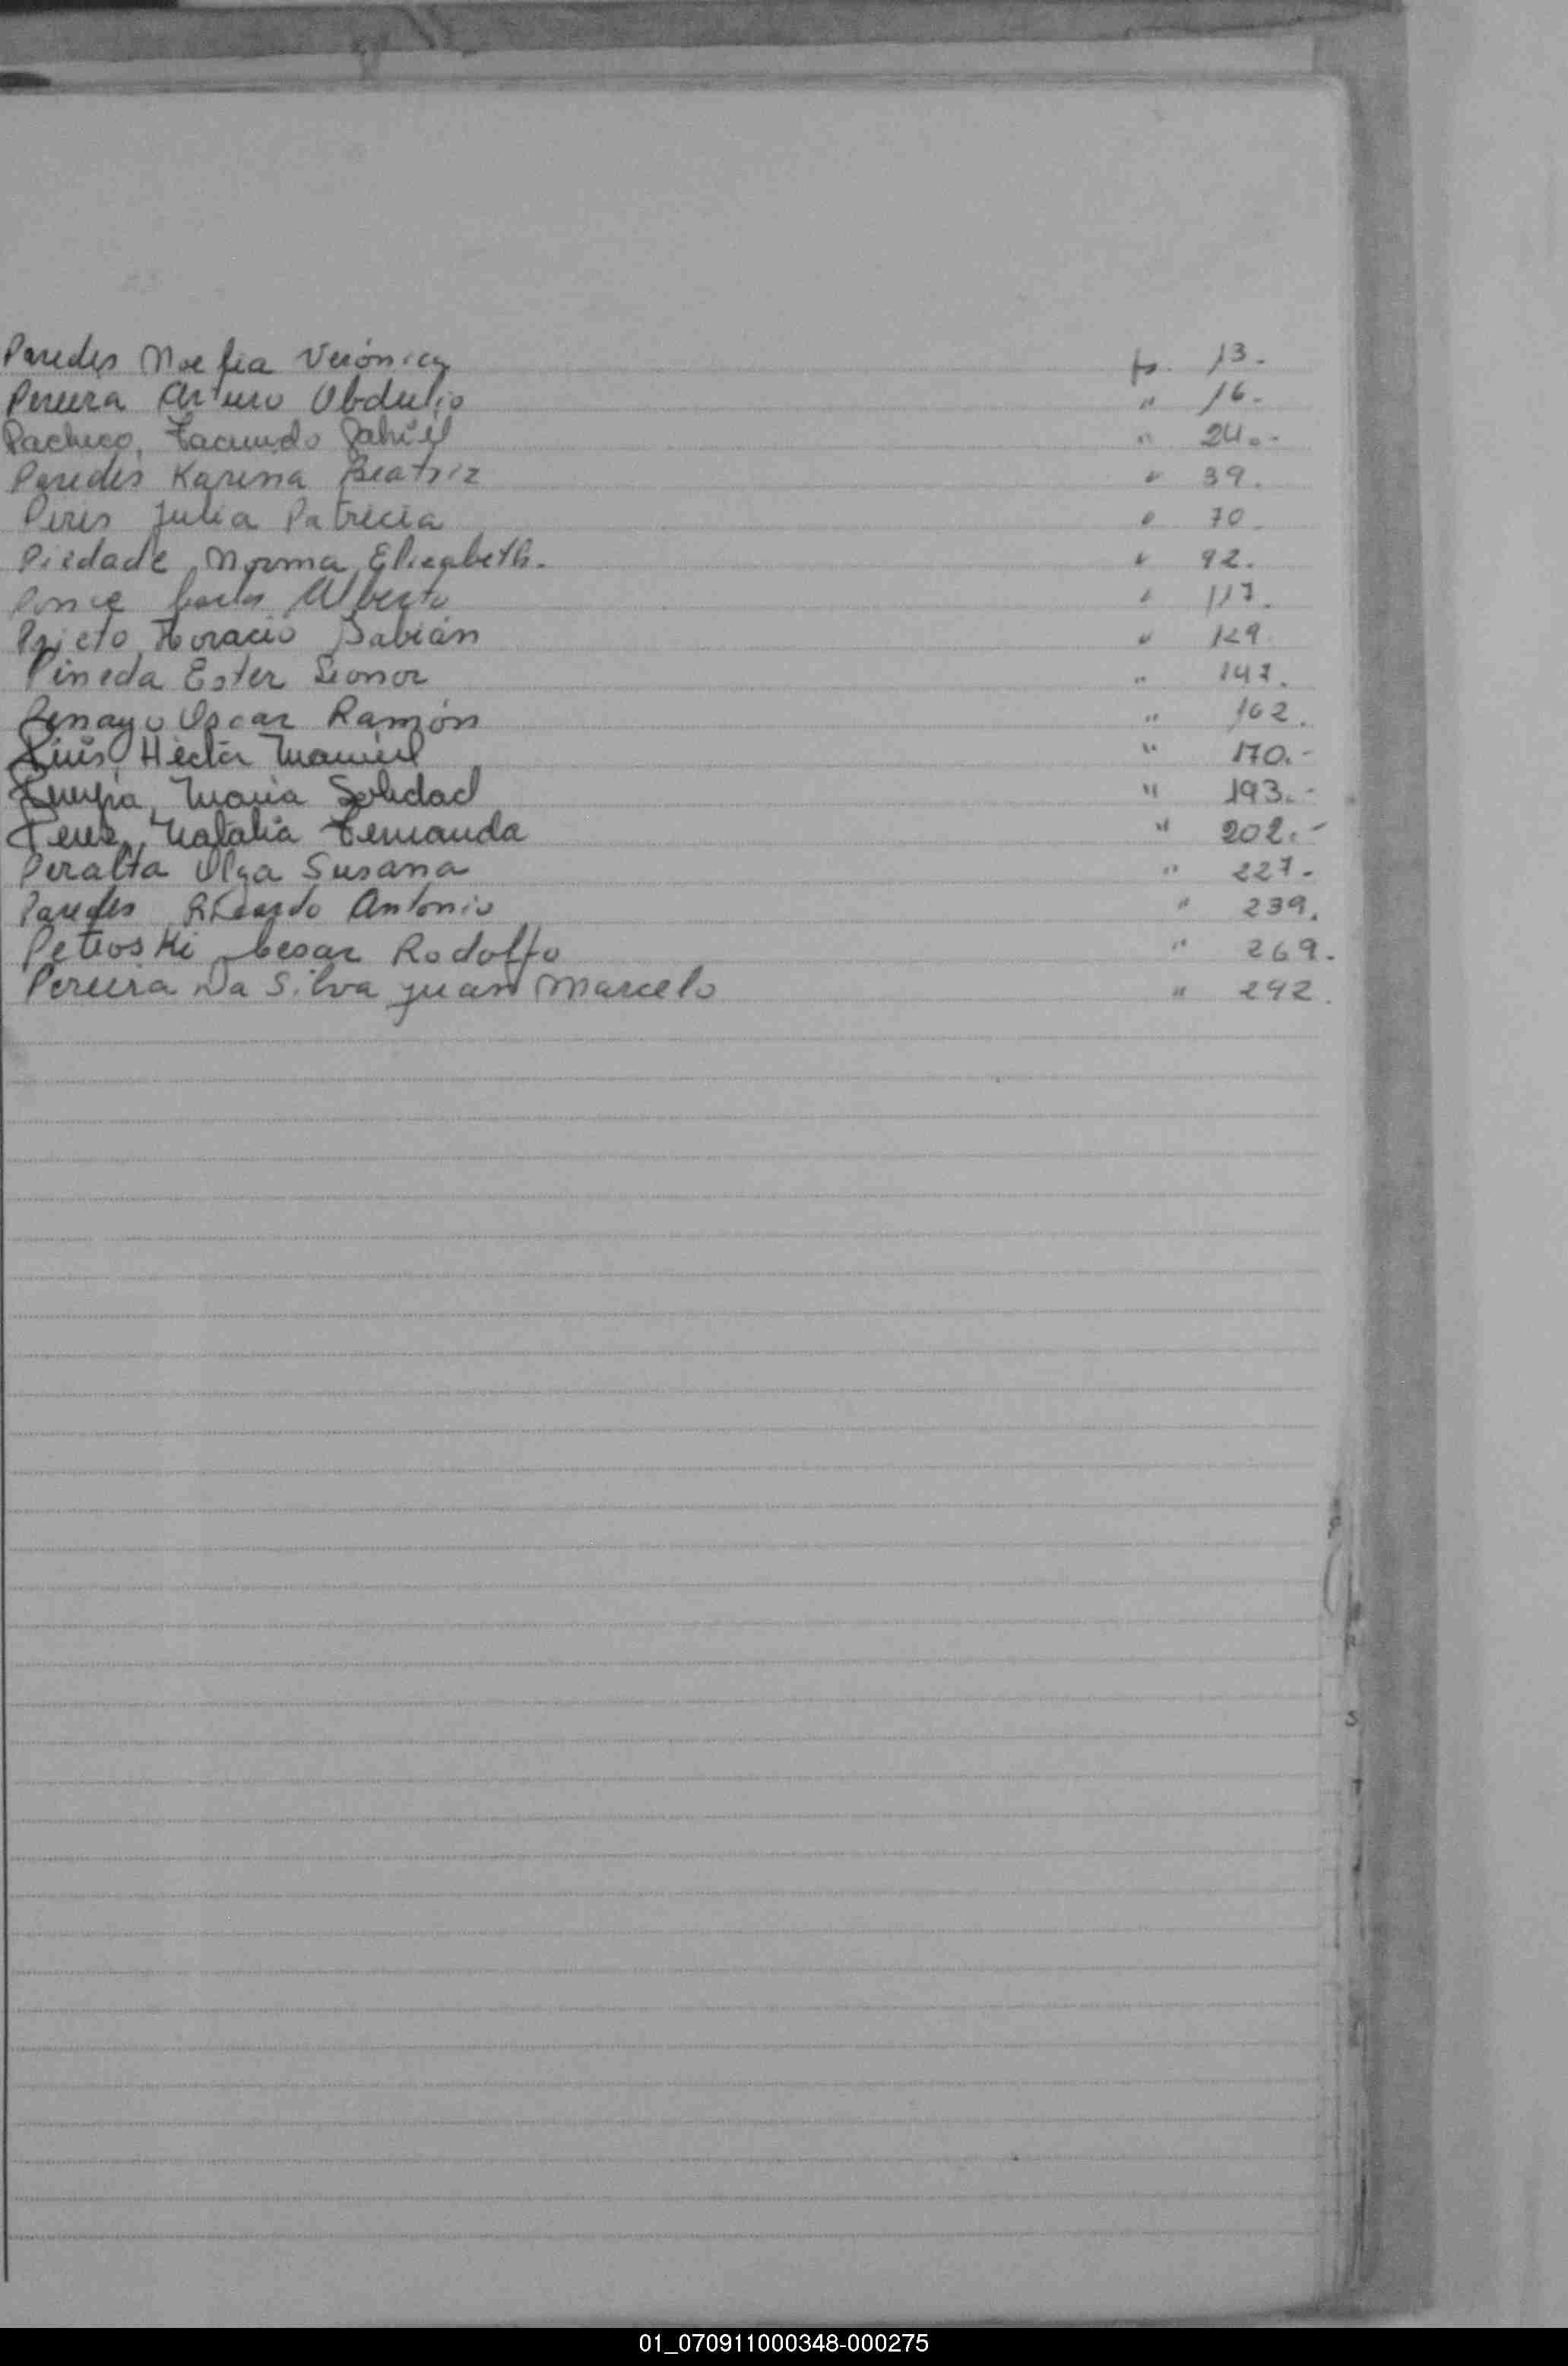 Paredes Noelia Verónica fs. 13.
Pereira Arturo Obdulio " 16.
Pacheco, Facundo Gabriel " 24.-
Paredes Karina Beatriz " 39.
Piris Julia Patricia " 70.
Piedade Norma Elizabeth. " 92.
Ponce Carlos Alberto " 117.
Prieto Horacio Fabián " 129.
Pineda Ester Leonor " 147.
Penayo Oscar Ramón " 162.
Piris, Héctor Manuel " 170.-
María Soledad " 193.-
Perez, Natalia Fernanda " 202.-
Peralta Olga Susana " 227.
Paredes Ricardo Antonio " 239.
Petroski Cesar Rodolfo " 269.
Pereira Da Silva Juan Marcelo " 292.
S
T
01_070911000348-000275